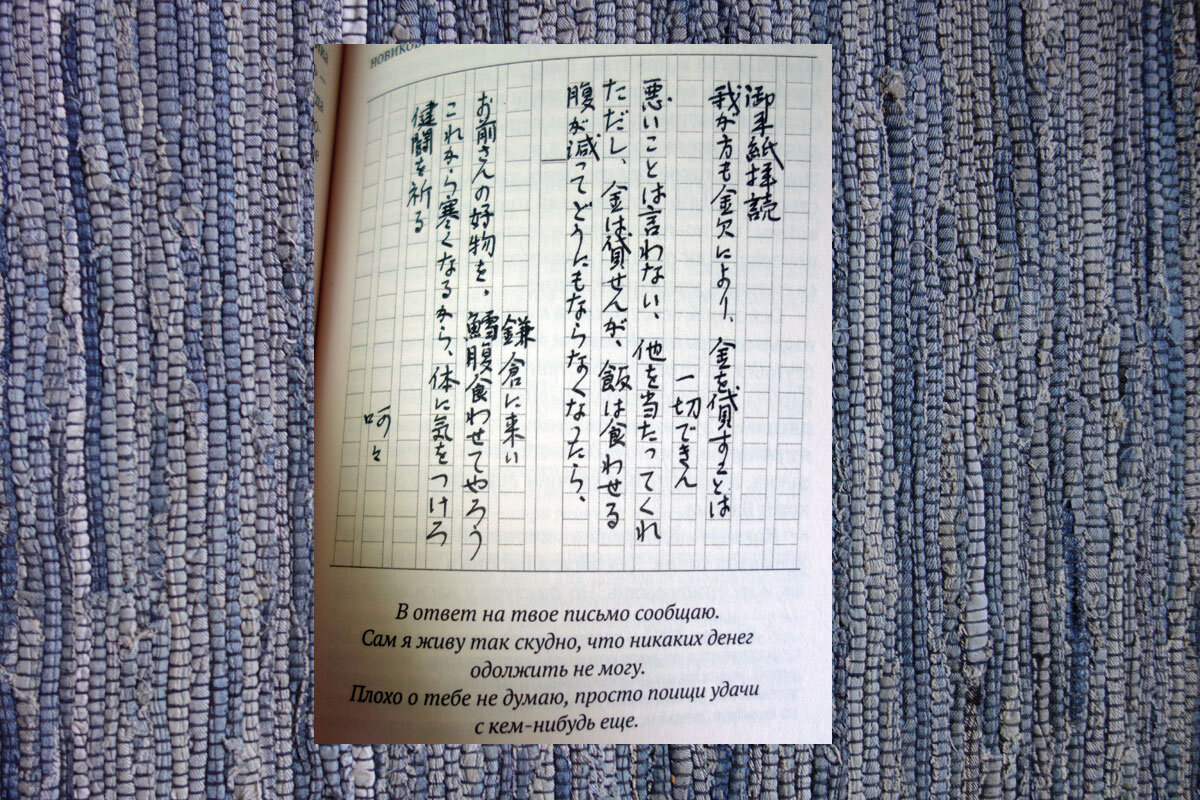 НОВИКОВ
御来紙拝読
我が方も金欠により、金を貸すことは
一切できん
悪いことは言わない、他を当たってくれ
ただし、金は貸せんが、飯は食わせる
腹が減ってどうにもならなくなったら、
鎌倉に来い
お前さんの好物を、鱈腹食わせてやろう
これから寒くなるから、体に気をつけろ
健闘を祈る
呵々
В ответ на твое письмо сообщаю.
Сам я живу так скудно, что никаких денег
одолжить не могу.
Плохо о тебе не думаю, просто поищи удачи
с кем-нибудь еще.